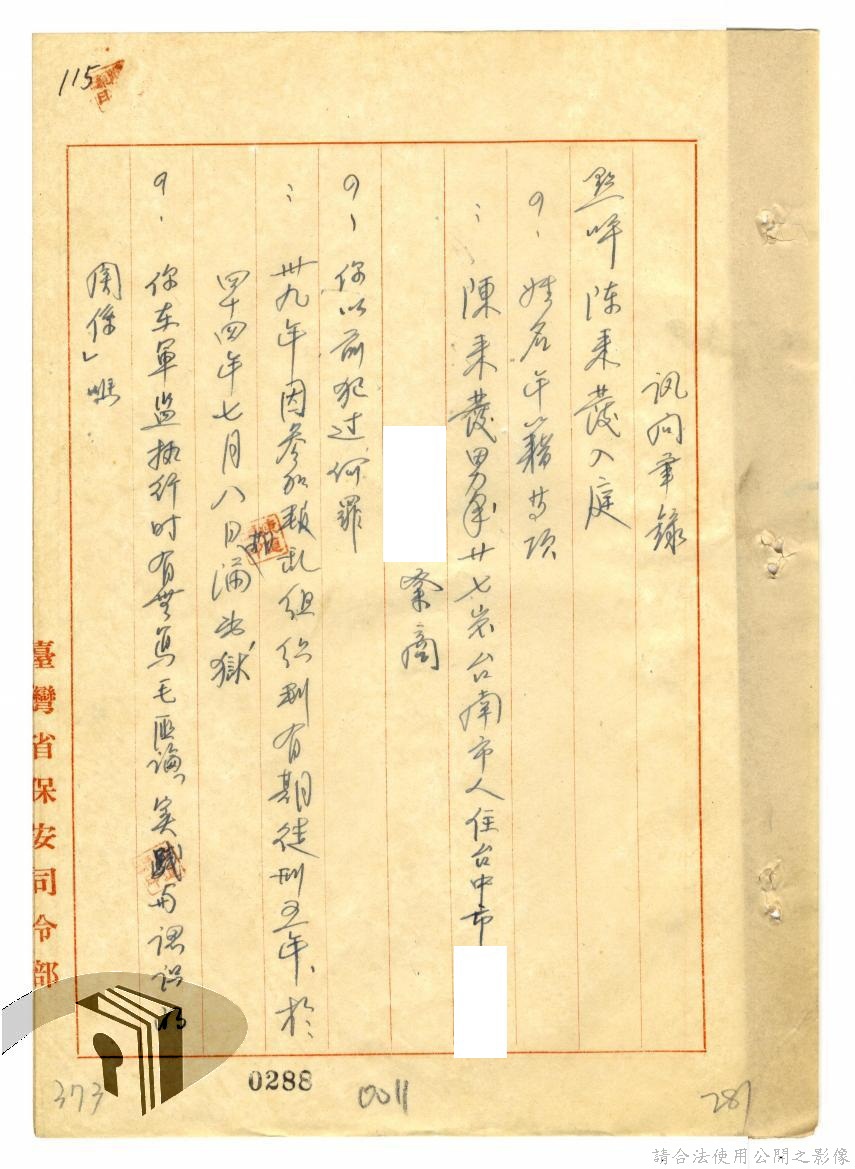 115
訊問筆錄
點呼陳来發入庭
問、姓名年籍等項
答：陳来發男年廿七岁台南市人住台中市
業商
問、你以前犯过何罪
答：卅九年因參加叛乱组织判有期徒刑五年、於
四十四年七月八日期滿出獄
問、你在軍监执行时有無写毛匪論「实踐与认识的
関係」嗎
臺灣省保安司令部
373
0288
0011
281
請合法使用公開之影像